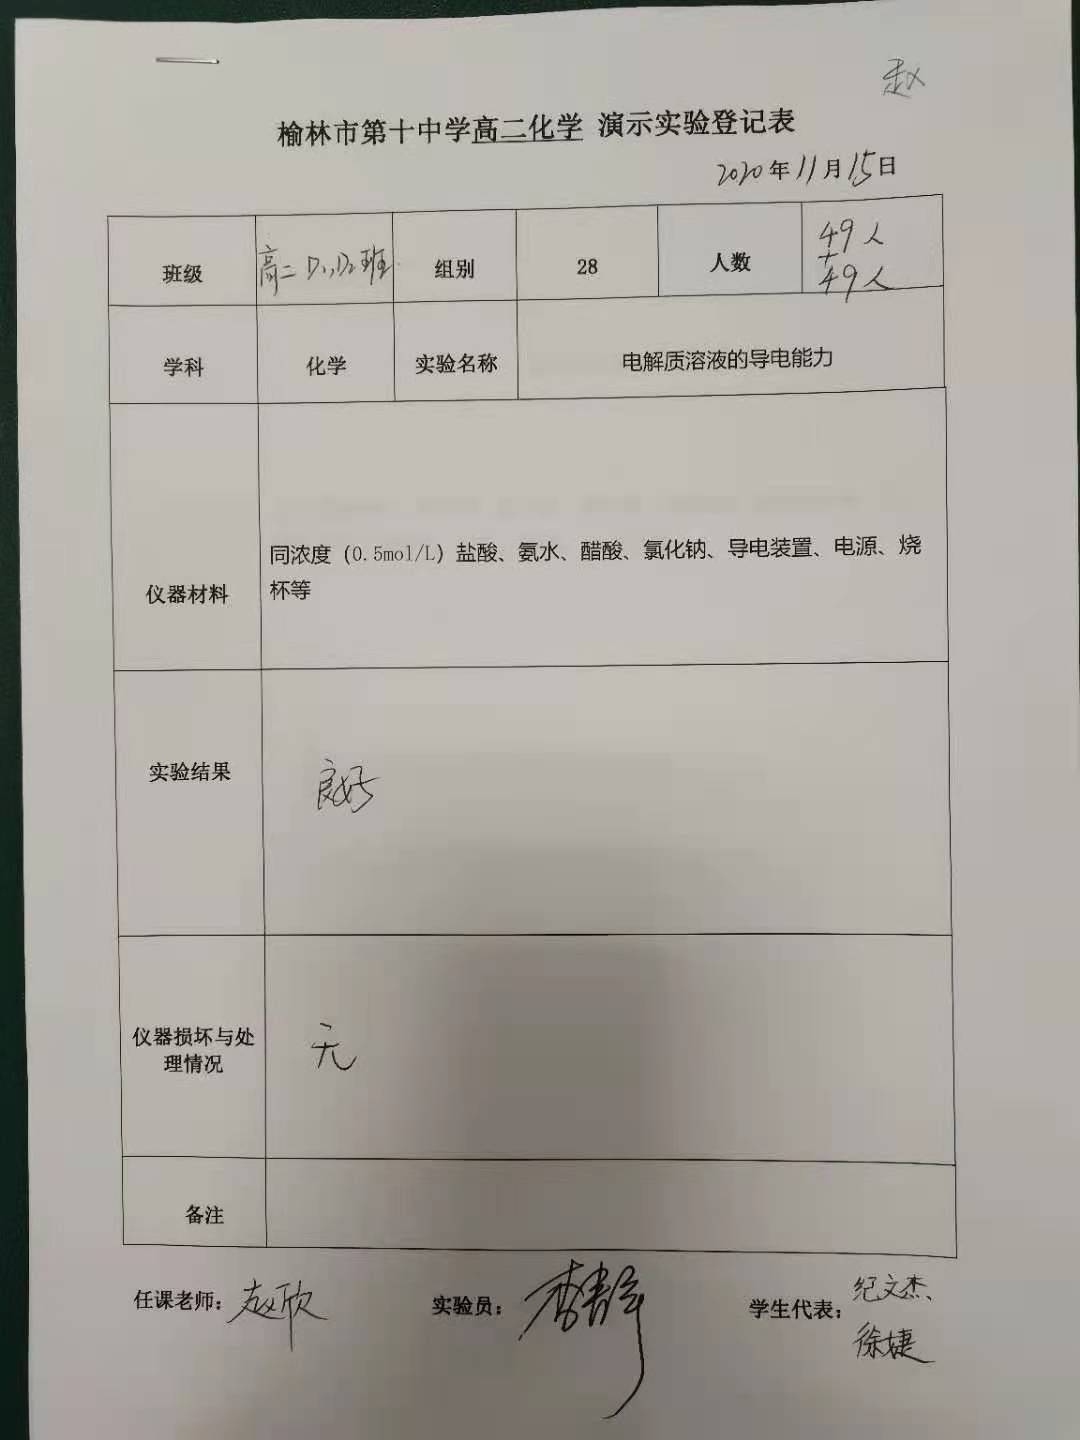 赵
榆林市第十中学高二化学 演示实验登记表
2020年11月15日
班级 高二D1,D2班 组别 28 人数 49人+49人
学科 化学 实验名称 电解质溶液的导电能力
仪器材料 同浓度（0.5mol/L）盐酸、氨水、醋酸、氯化钠、导电装置、电源、烧
杯等
实验结果 良好
仪器损坏与处
理情况 无
备注
任课老师：赵欣 实验员：李静 学生代表：纪文杰、
徐婕